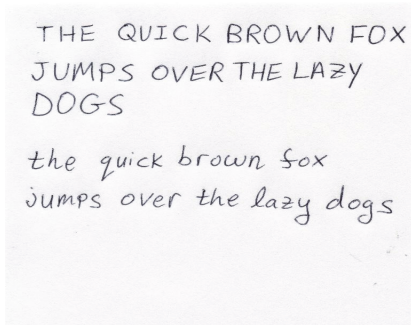 THE QUICK BROWN FOX
JUMPS OVER THE LAZY
DOGS
the quick brown fox
jumps over the lazy dogs